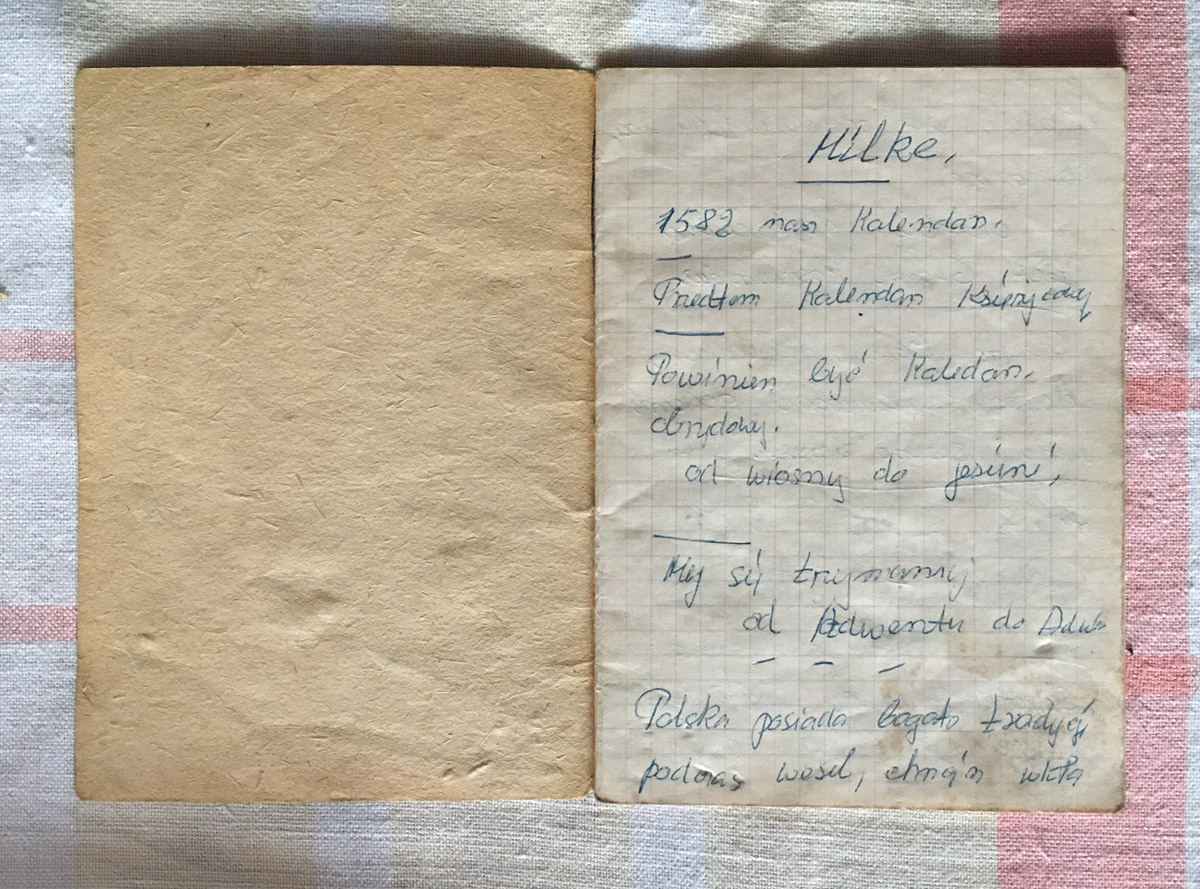 Milke,
1582 nasz Kalendarz.
Przedtem Kalendarz Księżycowy
Powinien być Kaledarz.
obrzędowy.
od wiosny do jesieni,
My się trzymamy
od Adwentu do Adw
Polska posiada bogato tradycję
podczas wesel, chrzcin